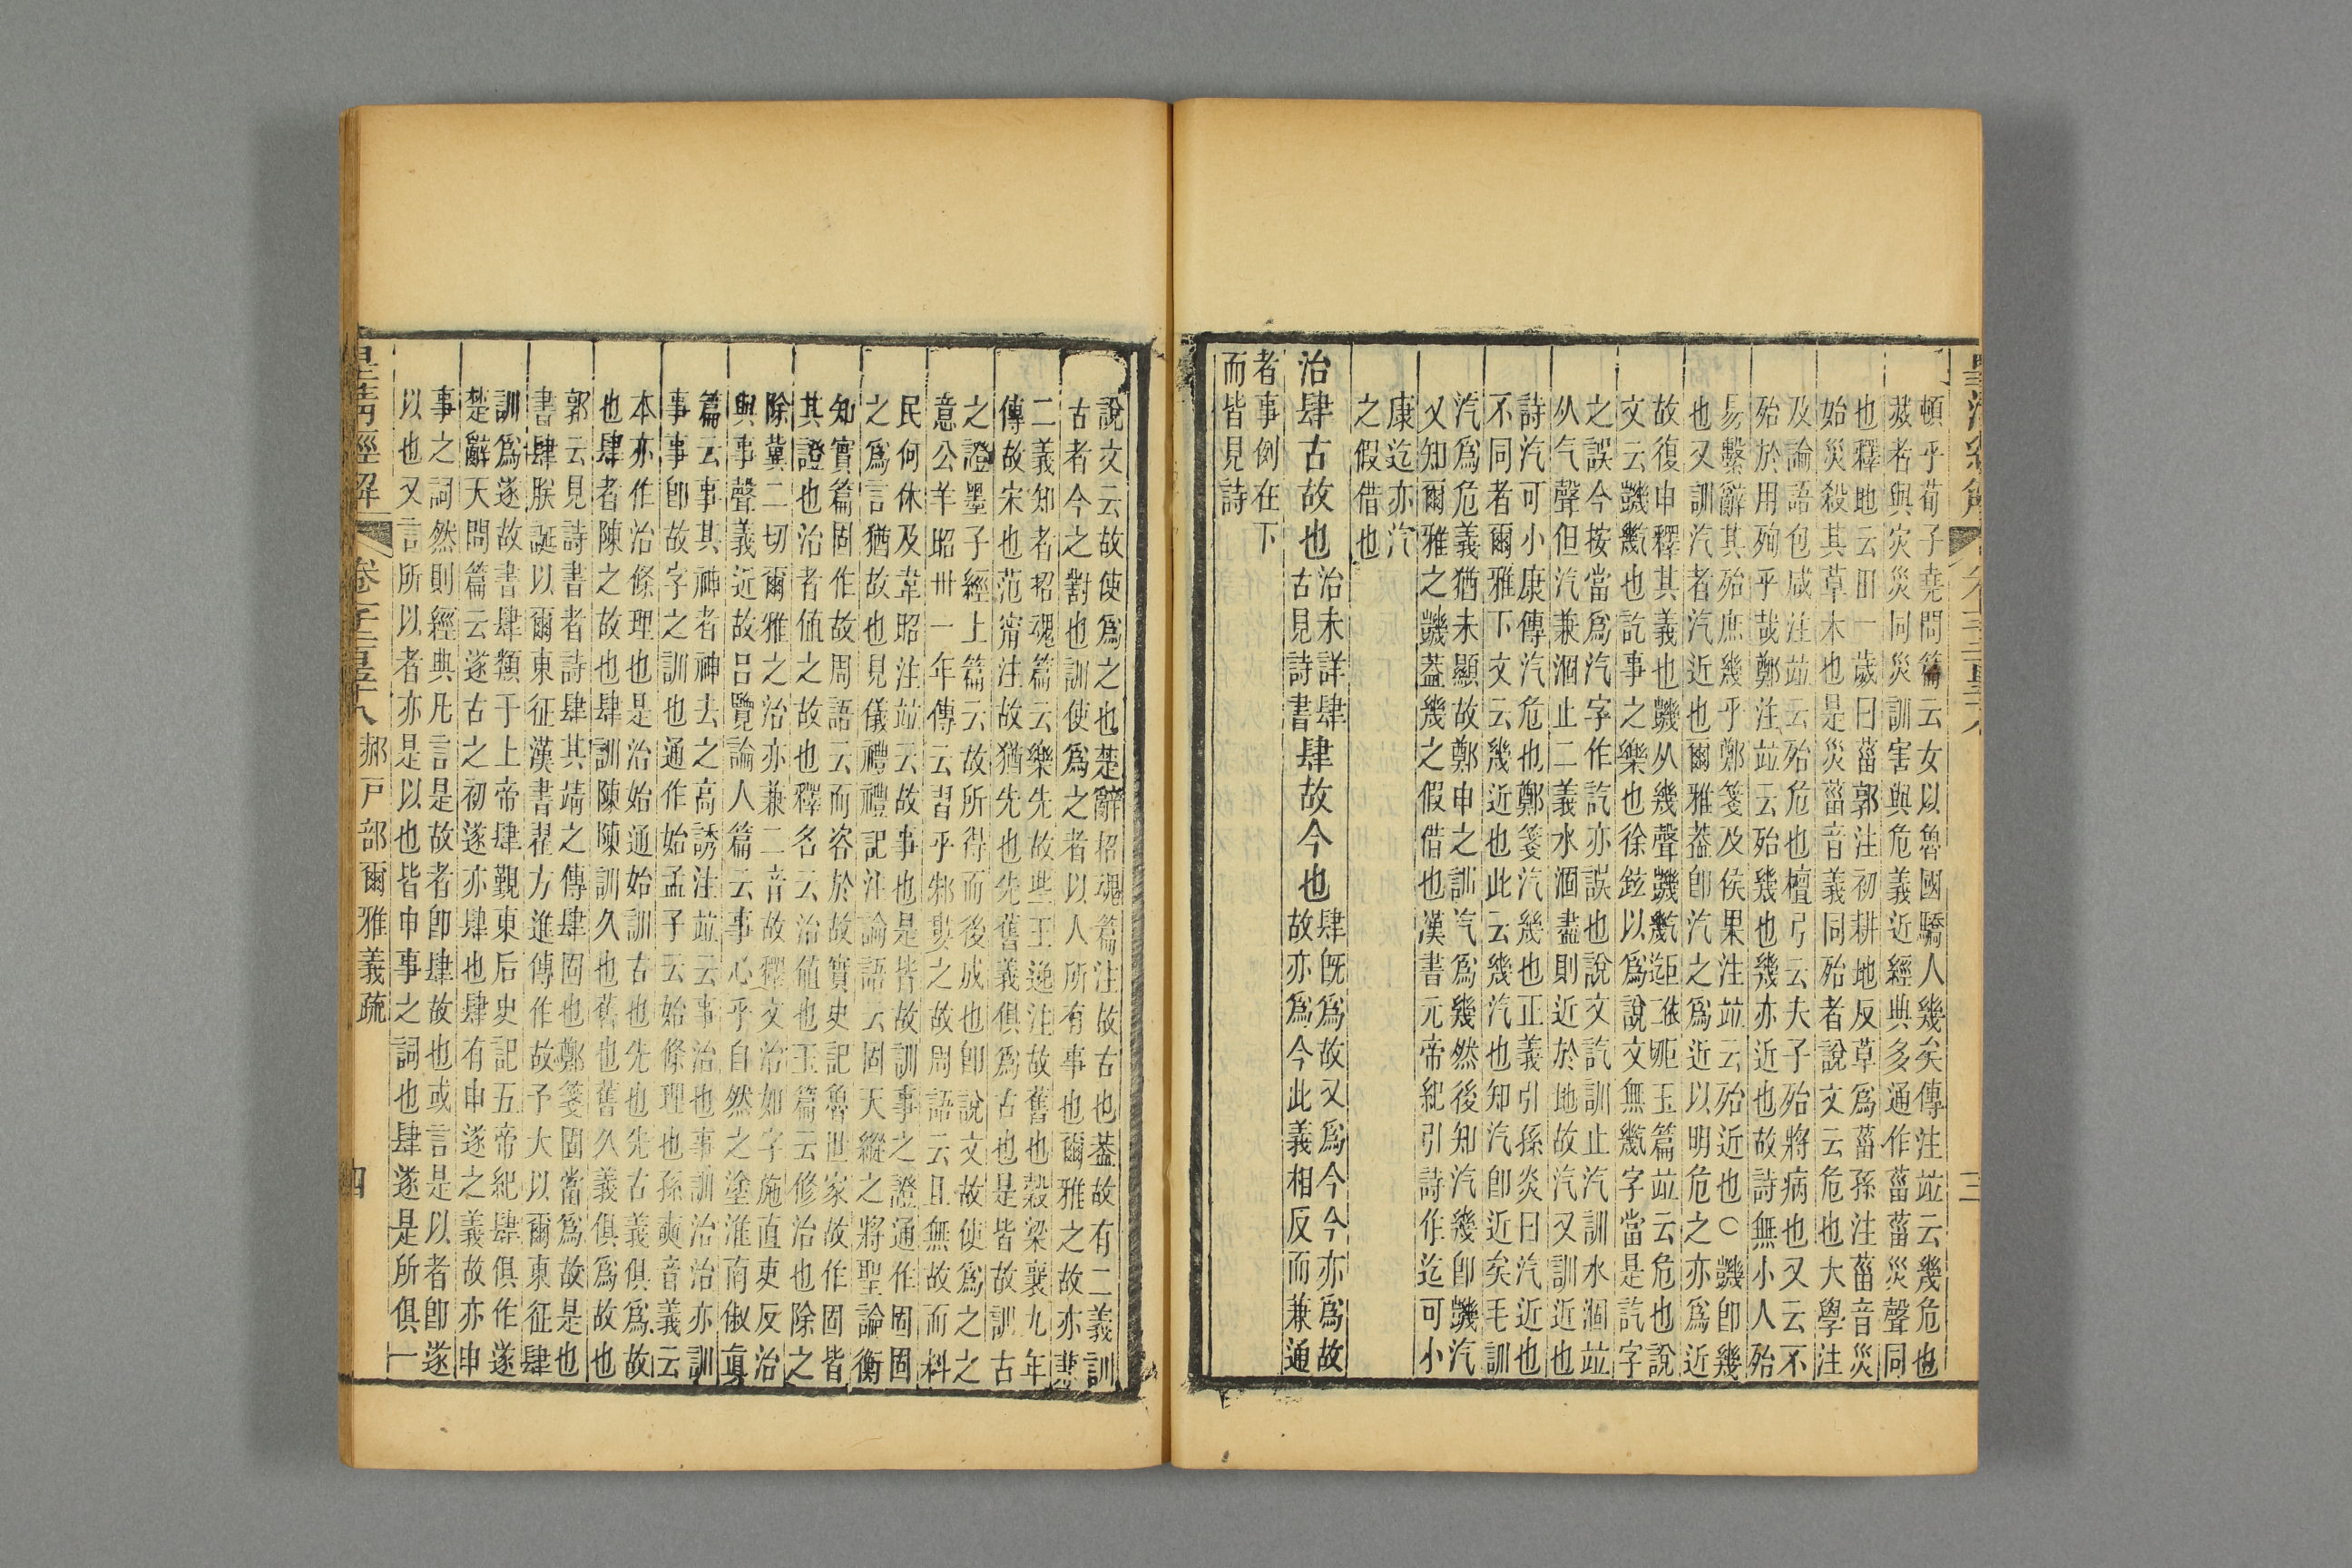 頓乎荀子堯問篇云女以魯國驕人幾矣傳注竝云幾危也
烖者與灾災同災訓害與危義近經典多通作菑菑災聲同
也釋地云田一歲曰菑郭注初耕地反草爲菑孫注菑音災
始災殺其草木也是災菑音義同殆者說文云危也大學注
及論語包咸注竝云殆危也檀弓云夫子殆將病也又云不
殆於用殉乎哉鄭注竝云殆幾也幾亦近也故詩無小人殆
易繫辭其殆庶幾乎鄭箋及侯果注竝云殆近也○譏卽幾
也又訓汽者汽近也爾雅葢卽汽之爲近以明危之亦爲近
故復申釋其義也譏从幾聲譏
文云也訖事之樂也徐鉉以爲說文無字當是訖字
之誤今按當爲汽字作訖亦誤也說文訖訓止汽訓水涸竝
从气聲但汽兼涸止二義水涸盡則近於地故汽又訓近也
詩汽可小康傳汽危也鄭箋汽幾也正義引孫炎曰汽近也
不同者爾雅下文云幾近也此云幾汽也知汽卽近矣毛訓
汽爲危義猶未顯故鄭申之訓汽爲幾然後知汽幾卽譏汽
又知爾雅之譏葢幾之假借也漢書元帝紀引詩作迄可小
康迄亦汽
之假借也
治肆古故也
治未詳肆
古見詩書
肆故今也
肆旣爲故又爲今今亦爲故
故亦爲今此義相反而兼通
者事例在下
而皆見詩
說文云故使爲之也楚辭招魂篇注故古也葢故有二義訓
古者今之對也訓使爲之者以人所有事也爾雅之故亦兼
二義知者招魂篇云樂先故些王逸注故舊也穀梁襄九年
傳故宋也范甯注故猶先也先舊義俱爲古也是皆故訓古
之證墨子經上篇云故所得而後成也卽說文故使爲之之
意公羊昭卅一年傳云習乎邾婁之故周語云且無故而料
民何休及韋昭注竝云故事也是皆故訓事之證通作固固
之爲言猶故也見儀禮禮記注論語云固天縱之將聖論衡
知實篇固作故周語云而咨於故實史記魯世家故作固皆
其證也治者値之故也釋名云治値也玉篇云修治也除之
除冀二切爾雅之治亦兼二音故釋文治如字施直吏反治
與事聲義近故呂覽論人篇云事心乎自然之塗淮南俶眞
篇云事其神者神去之高誘注竝云事治也事訓治治亦訓
事事卽故字之訓也通作始孟子云始條理也孫奭音義云
本亦作治條理也是治始通始訓古也先也先古義俱爲故
也肆者陳之故也肆訓陳陳訓久也舊也舊久義俱爲故也
郭云見詩書者詩肆其靖之傳肆固也鄭箋固當爲故是也
書肆朕誕以爾東征漢書翟方進傳作故予大以爾東征肆
訓爲遂故書肆類于上帝肆覲東后史記五帝紀肆俱作遂
楚辭天問篇云遂古之初遂亦肆也肆有申遂之義故亦申
事之詞然則經典凡言是故者卽肆故也或言是以者卽遂
以也又言所以者亦是以也皆申事之詞也肆遂是所俱一
郝戶部爾雅義疏
四